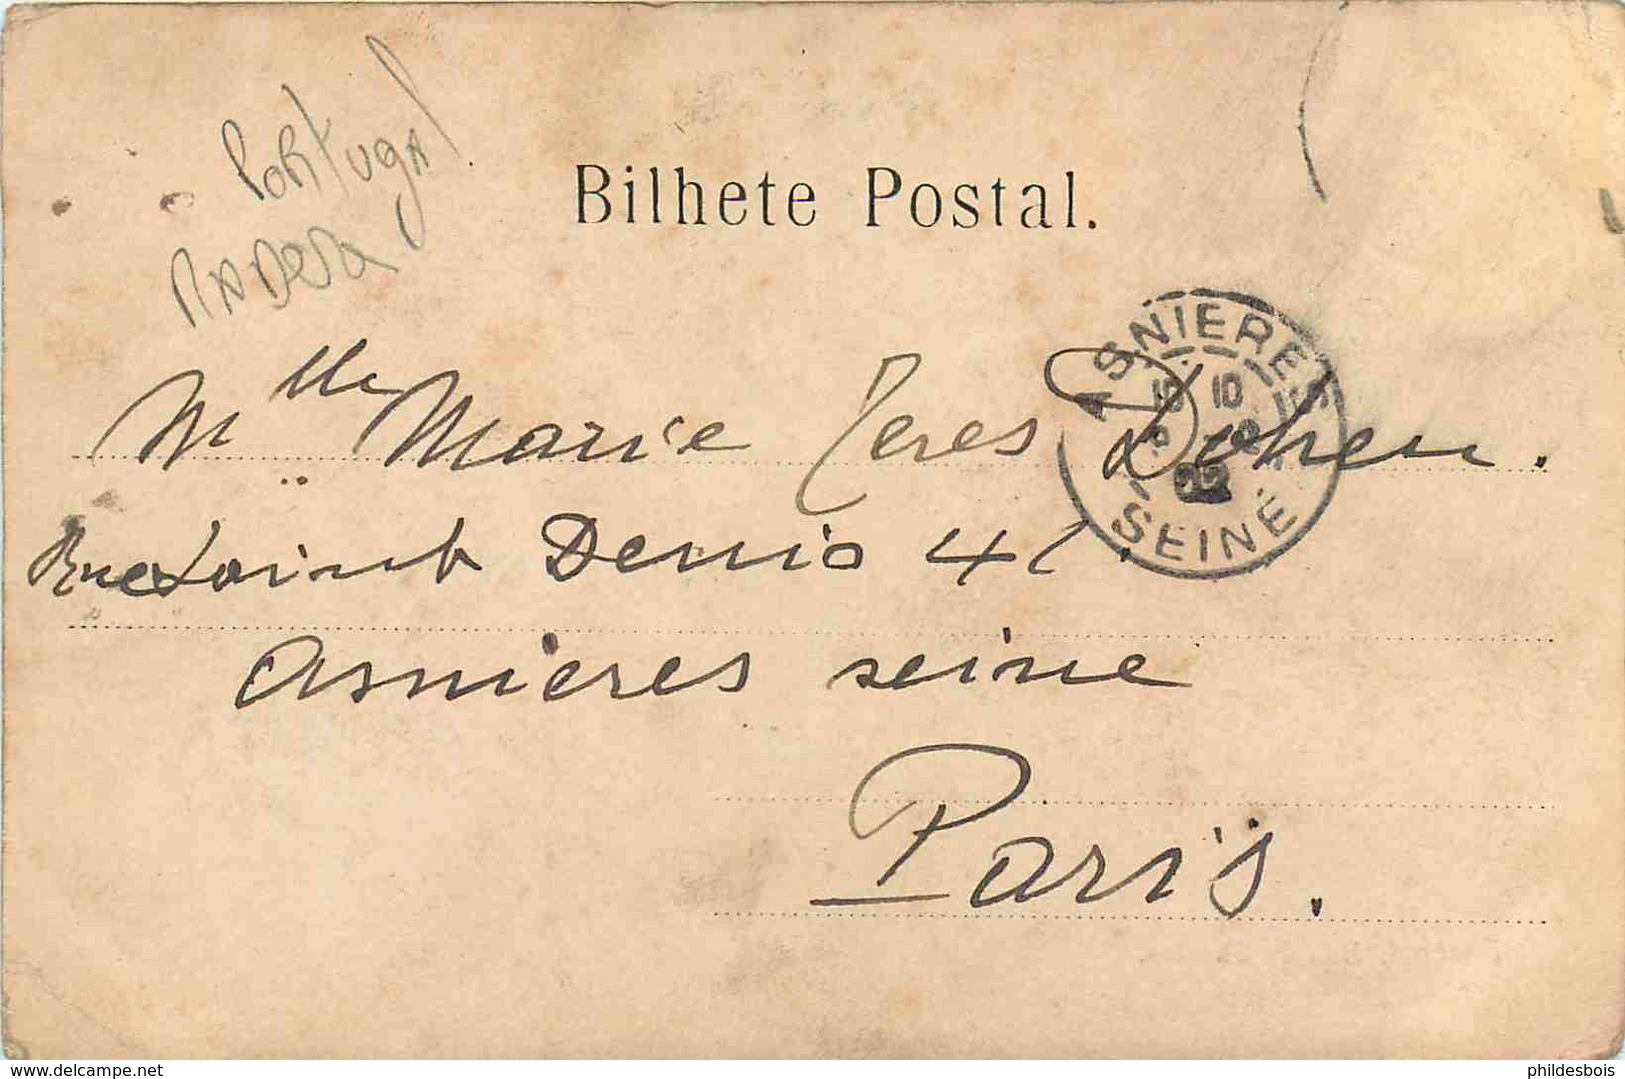 Portugal
MADERA
Bilhete Postal.
ASNIERES
SEINE
Mlle Marie Teres Dohen.
Rue Saint Denis 41.
Asnieres seine
Paris.
www.delcampe.net
phildesbois